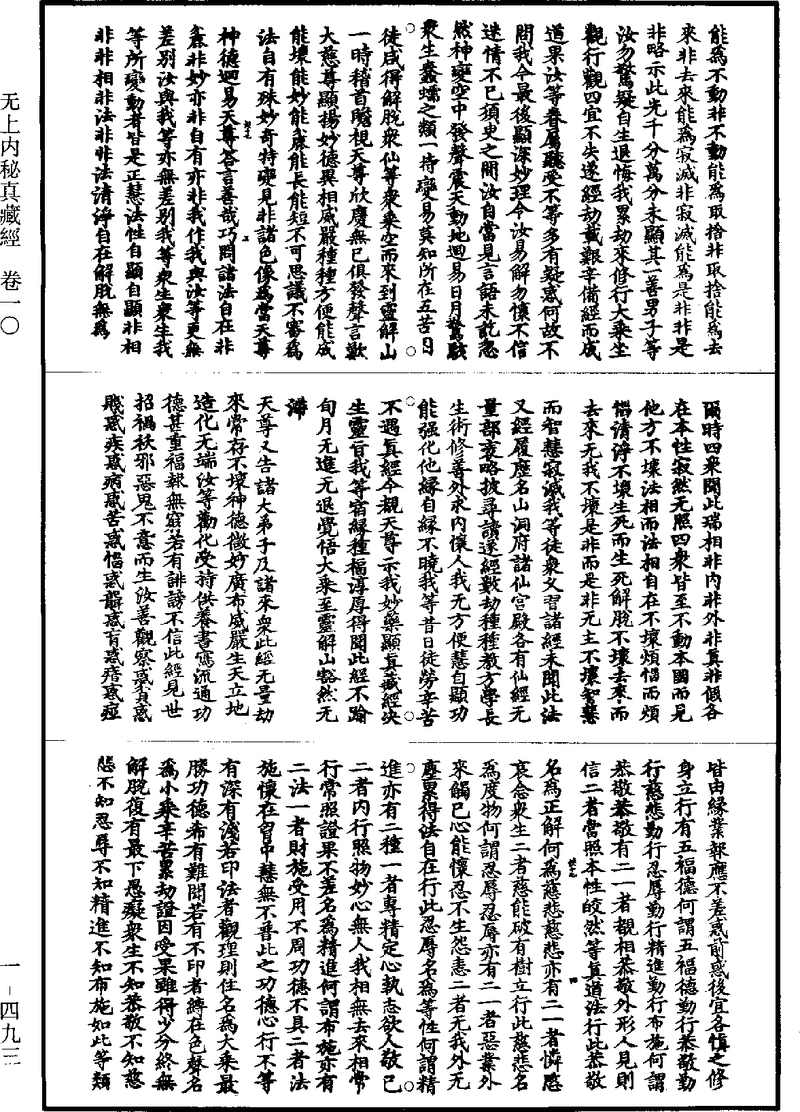 无上内秘真藏經 卷一〇
一－四九三
能為不動非不動能為取捨非取捨能為去
來非去來能為寂滅非寂滅能為是非非是
非略示此光千分萬分未顯其一善男子等
汝勿驚疑自生退悔我累劫來修行大乘坐
觀行觀四宜不失遂經劫載艱辛備經而成
道果汝等眷屬聽受不等多有疑惑何故不
問我今最後顯深妙理令汝易解勿懷不信
迷情不已須臾之間汝自當見言語未訖忽
然神變空中發聲震天動地迴易日月驚駭
眾生蠢蠕之類一時變易莫知所在五苦囚
徒咸得解脫眾仙等眾乘空而來到靈解山
一時稽首瞻視天尊欣慶無已俱發聲言歎
大慈尊顯揚妙德異相威嚴種種方便能成
能壞能妙能麁能長能短不可思議不審為
法自有殊妙奇特變見非諸色像為當天尊
神德迴易天尊答言善哉巧問諸法自在非
麁非妙亦非自有亦非我作我與汝等更無
差別汝與我等亦無差別我等眾生眾生我
等所變動者皆是正慧法性自顯自顯非相
非非相非法非非法清淨自在解脫無為
爾時四眾聞此瑞相非內非外非真非假各
在本性寂然无照四眾皆至不動本國而見
他方不壞法相而法相自在不壞煩惱而煩
惱清淨不壞生死而生死解脫不壞去來而
去來无我不壞是非而是非无主不壞智慧
而智慧寂滅我等徒眾久習諸經未聞此法
又經履歷名山洞府諸仙宮殿各有仙經无
量部袠略披尋讀遂經數劫種種教方學長
生術修善外求內懷人我无方便慧自顯功
能強化他緣自緣不曉我等昔日徒勞辛苦
不遇真經今覩天尊示我妙藥顯真藏經決
生靈旨我等宿緣種福淳厚得聞此經不踰
旬月无進无退覺悟大乘至靈解山豁然无
滯
天尊又告諸大弟子及諸來眾此經无量劫
來常存不壞神德微妙廣布威嚴生天立地
造化无端汝等勸化受持供養書寫流通功
德甚重福報無窮若有誹謗不信此經見世
招禍秋邪惡鬼不意而生汝善觀察惑有惑
賤惑疾惑病惑苦惑惱惑聾惑盲惑瘖惑瘂
皆由緣業報應不差惑前惑後宜各慎之修
身立行有五福德何謂五福德勤行恭敬勤
行慈悲勤行忍辱勤行精進勤行布施何謂
恭敬恭敬有二一者覩相恭敬外形人見則
信二者當照本性皎然等真道法行此恭敬
名為正解何為慈悲慈悲亦有二一者憐愍
哀念眾生二者慈能破有樹立行此慈悲名
為度物何謂忍辱忍辱亦有二一者惡業外
來觸己心能懷忍不生怨恚二者无我外无
塵累得法自在行此忍辱名為等性何謂精
進亦有二種一者專精定心執志欲人敬己
二者內行照物妙心無人我相無去來相常
行常照證果不差名為精進何謂布施亦有
二法一者財施受用不周功德不具二者法
施懷在胷中慧無不普此之功德心行不等
有深有淺若印法者觀理則住名為大乘最
勝功德希有難聞若有不印者縛在色聲名
為小乘辛苦累劫證因受果雖得少分終無
解脫復有最下愚癡眾生不知恭敬不知慈
悲不知忍辱不知精進不知布施如此等類